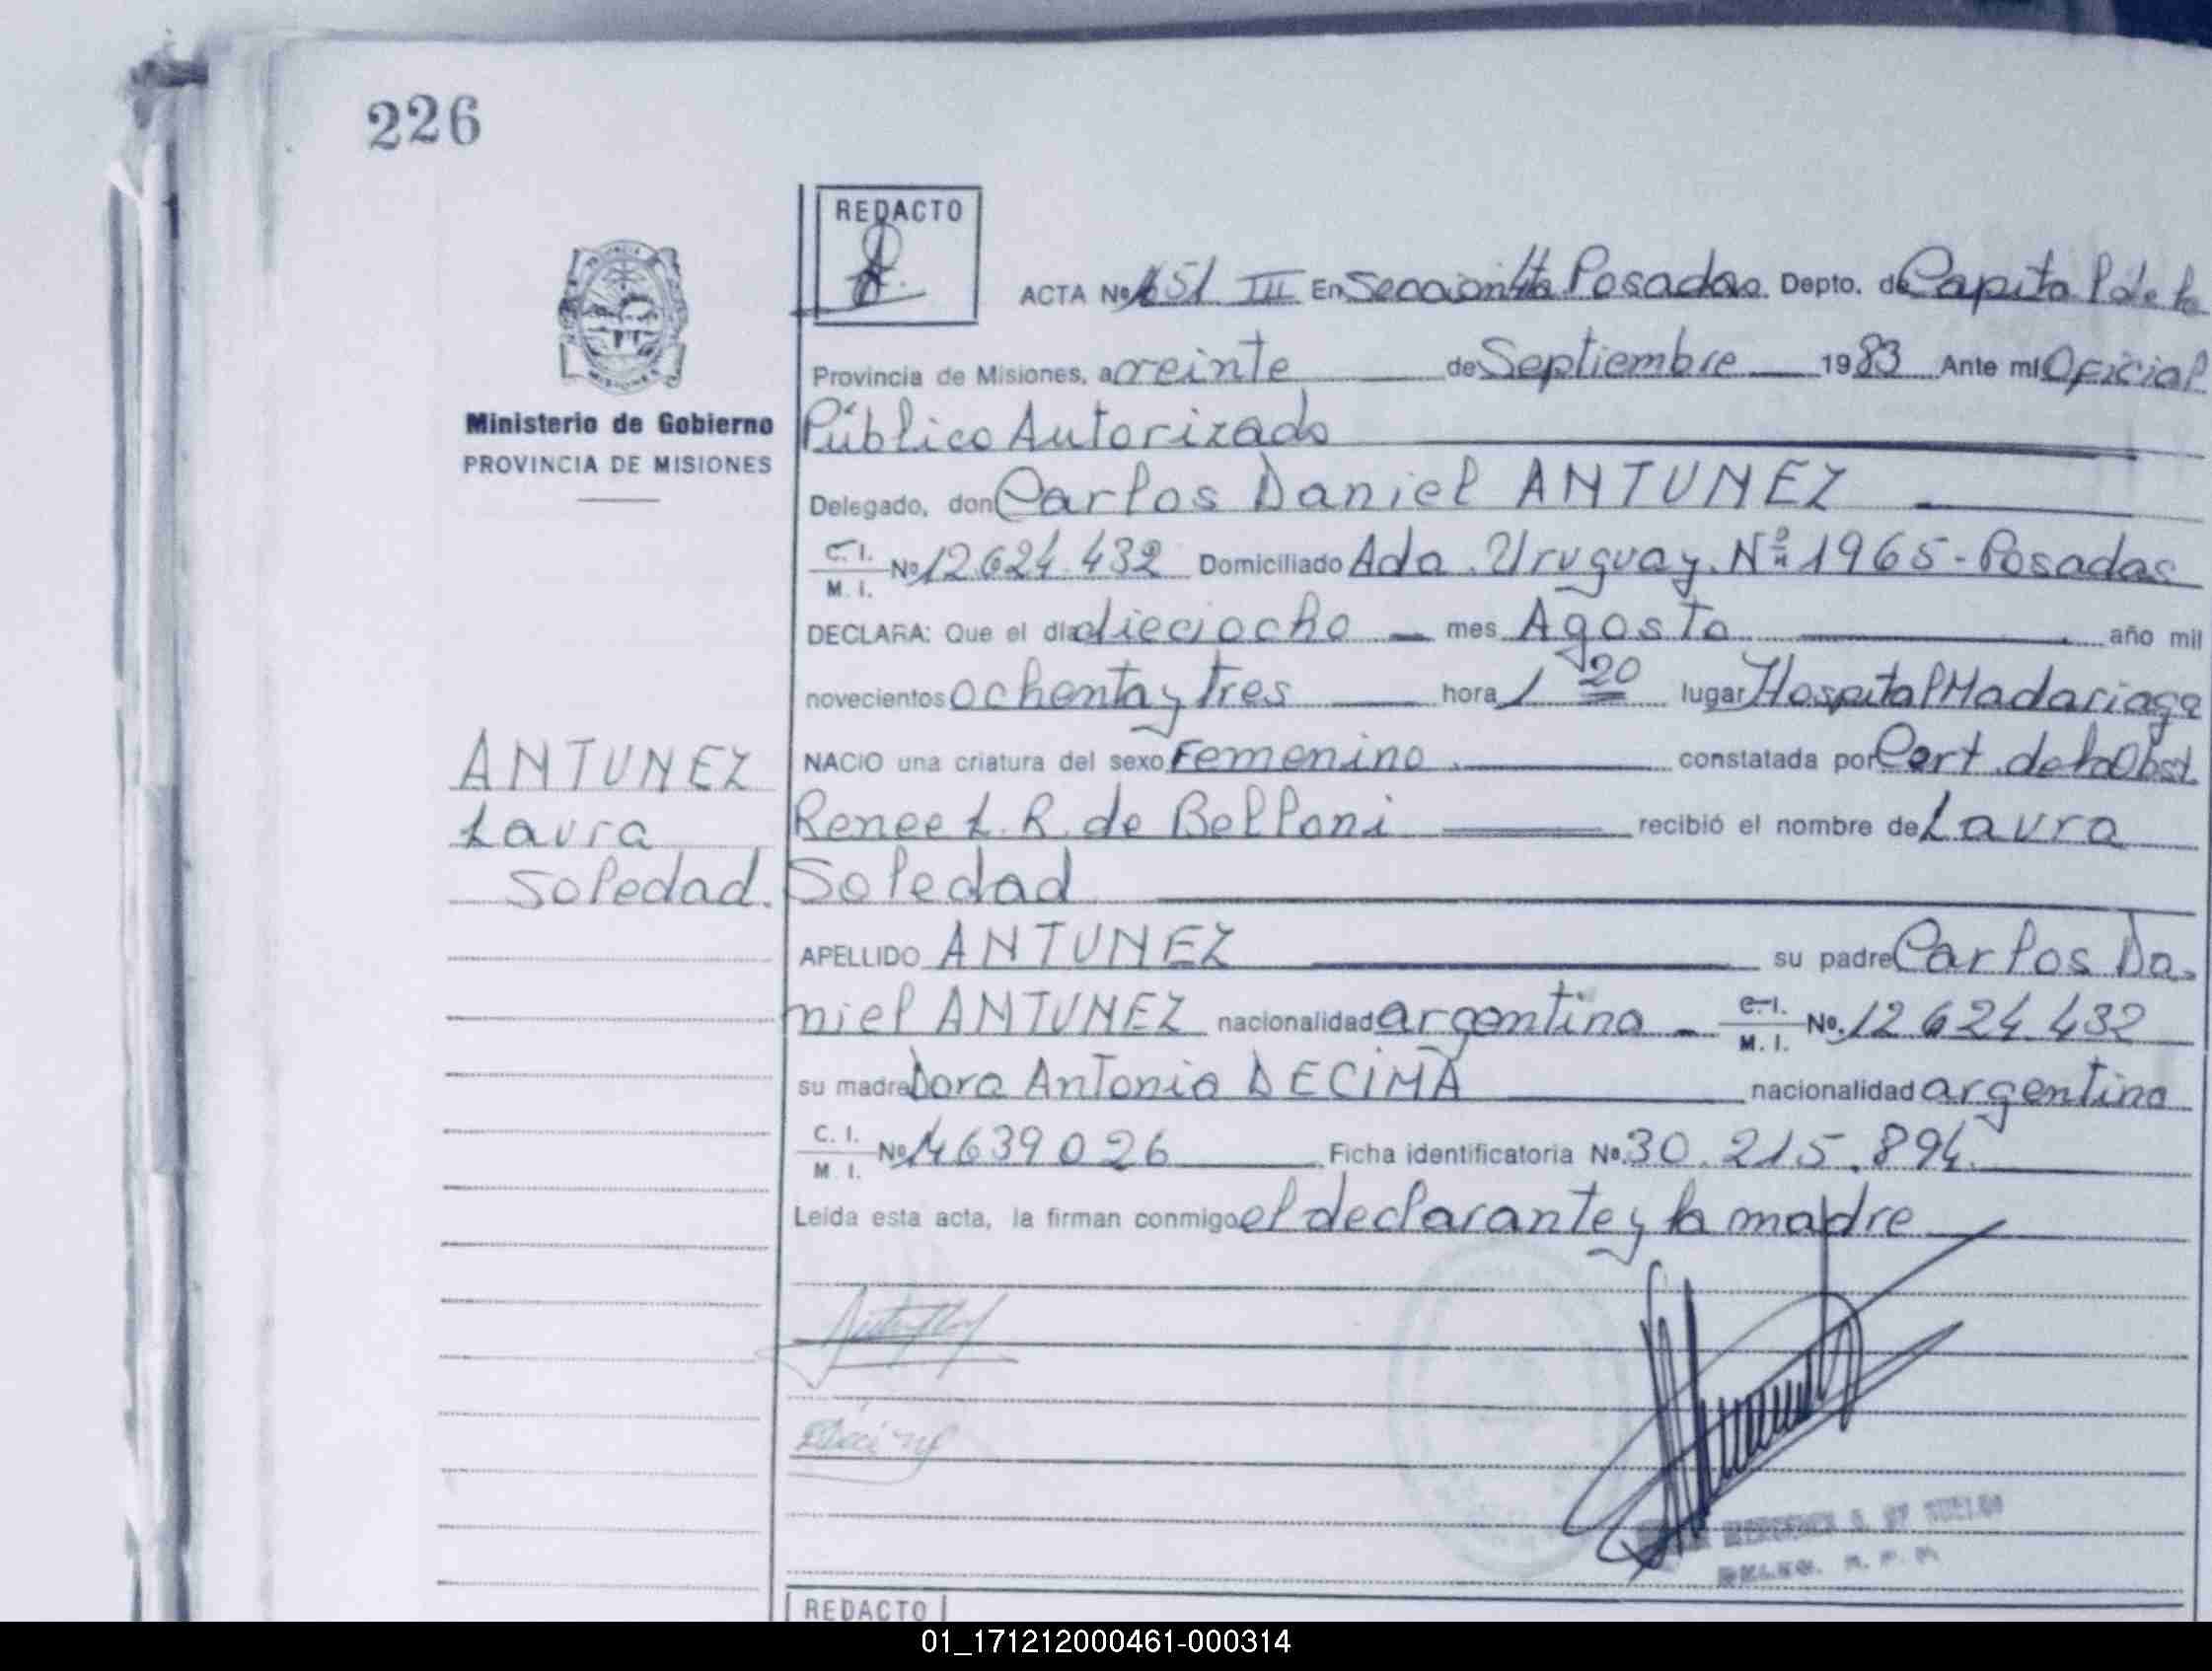 226
REDACTO
ACTA Nº 651 III En Sección 4ta Posadas Depto. de Capital de la
Provincia de Misiones, a veinte de Septiembre 1983 Ante mi Oficial
Ministerio de Gobierno
PROVINCIA DE MISIONES
Público Autorizado
Delegado, don Carlos Daniel ANTUNEZ
C. I.
M. I.
Nº 12.624.432 Domiciliado Ada. Uruguay. Nº 1965 - Posadas
DECLARA: Que el día dieciocho mes Agosto año mil
novecientos ochenta y tres hora 1 20 lugar Hospital Madariaga
NACIO una criatura del sexo Femenino constatada por Cert. de la Obst.
ANTUNEZ
Laura
Soledad.
Renee L. R. de Belloni recibió el nombre de Laura
Soledad
APELLIDO ANTUNEZ su padre Carlos Da-
niel ANTUNEZ nacionalidad argentina C. I.
M. I.
No. 12.624.432
su madre Dora Antonia DECIMA nacionalidad argentina
C. I.
M. I.
Nº 4639026 Ficha identificatoria Nº. 30.215.894.
Leida esta acta, la firman conmigo el declarante y la madre
DELEG. R. P. P.
REDACTO
01_171212000461-000314